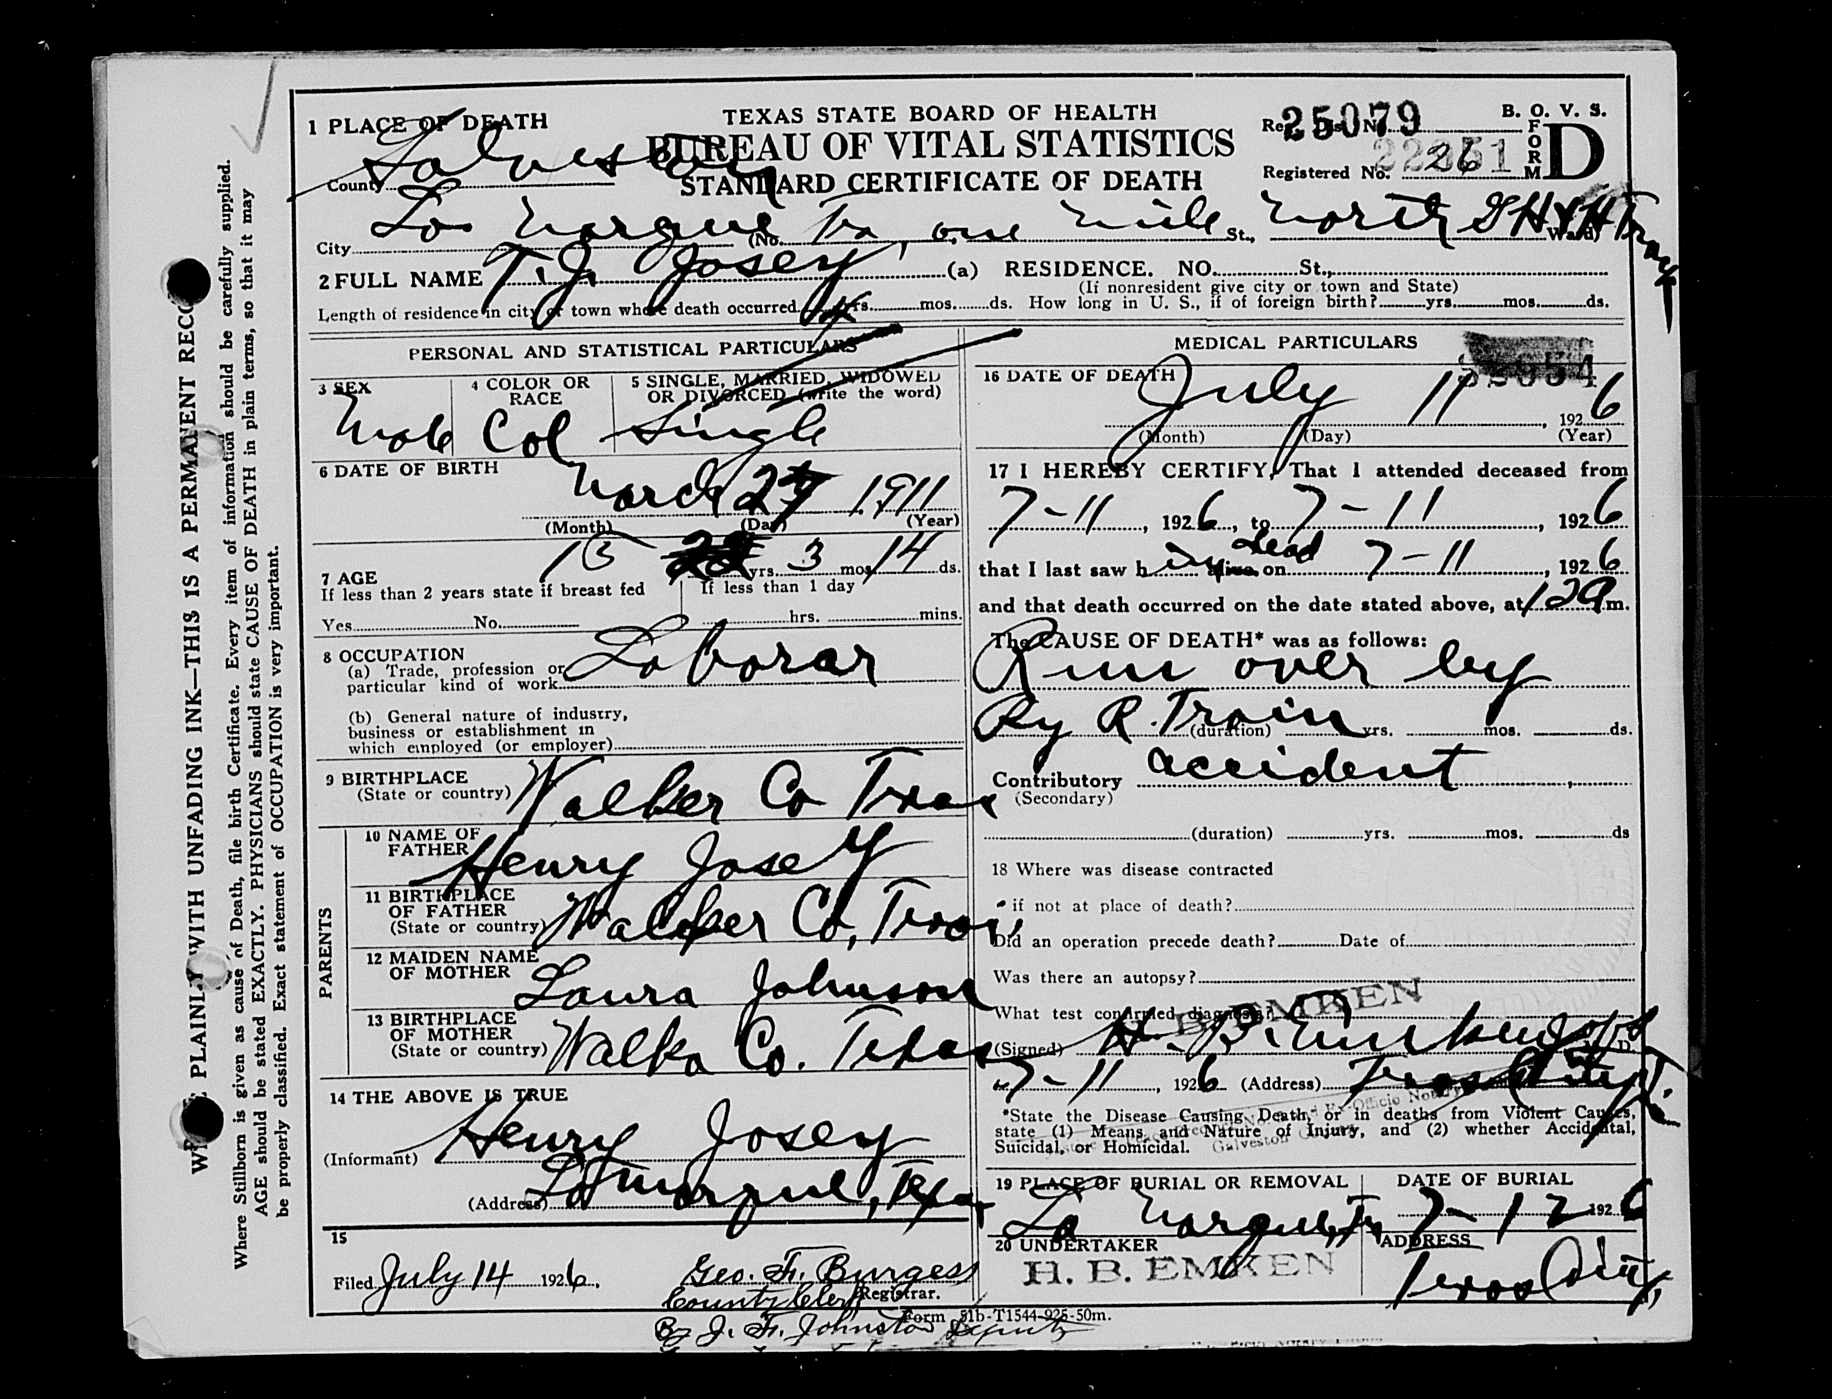 WRITE PLAINLY WITH UNFADING INK—THIS IS A PERMANENT RECORD
Where Stillborn is given as cause of Death, file birth Certificate. Every item of information should be carefully supplied.
AGE should be stated EXACTLY. PHYSICIANS should state CAUSE OF DEATH in plain terms, so that it may
be properly classified. Exact statement of OCCUPATION is very important.
1 PLACE OF DEATH
TEXAS STATE BOARD OF HEALTH
BUREAU OF VITAL STATISTICS
STANDARD CERTIFICATE OF DEATH
25079
B. O. V. S.
FORM D
Registered No. 26
County Galveston
City La Marque Tex, one mile (No. St., North GH&H Track Ward)
2 FULL NAME T. J. Josey (a) RESIDENCE. NO. St.,
(If nonresident give city or town and State)
Length of residence in city or town where death occurred 4 yrs. mos. ds. How long in U. S., if of foreign birth? yrs. mos. ds.
PERSONAL AND STATISTICAL PARTICULARS
3 SEX
Male
4 COLOR OR RACE
Col
5 SINGLE, MARRIED, WIDOWED
OR DIVORCED (write the word)
Single
6 DATE OF BIRTH
March 27 1911
(Month) (Day) (Year)
7 AGE
15 yrs. 3 mos 14 ds.
If less than 2 years state if breast fed
If less than 1 day
Yes No hrs. mins.
8 OCCUPATION
(a) Trade, profession or
particular kind of work Laborar
(b) General nature of industry,
business or establishment in
which employed (or employer)
9 BIRTHPLACE
(State or country) Walker Co Texas
PARENTS
10 NAME OF
FATHER Henry Josey
11 BIRTHPLACE
OF FATHER
(State or country) Walker Co, Texas
12 MAIDEN NAME
OF MOTHER Laura Johnson
13 BIRTHPLACE
OF MOTHER
(State or country) Walka Co. Texas
14 THE ABOVE IS TRUE
(Informant) Henry Josey
(Address) La Marque, Texas
15
Filed July 14 1926, Geo. F. Burgess
County Clerk Registrar.
By J. F. Johnston Deputy
MEDICAL PARTICULARS
16 DATE OF DEATH
July 11, 1926
(Month) (Day) (Year)
17 I HEREBY CERTIFY, That I attended deceased from
7-11, 1926, to 7-11, 1926
that I last saw him alive dead on 7-11, 1926
and that death occurred on the date stated above, at 12 a m.
The CAUSE OF DEATH* was as follows:
Run over by
Ry R. Train (duration) yrs. mos. ds.
Contributory accident
(Secondary)
(duration) yrs. mos. ds
18 Where was disease contracted
if not at place of death?
Did an operation precede death? Date of
Was there an autopsy?
What test confirmed diagnosis?
H. B. EMKEN
(Signed) H. B. Emken J.P. M. D.
7-11, 1926 (Address) Texas City, Tx.
*State the Disease Causing Death, or in deaths from Violent Causes,
state (1) Means and Nature of Injury, and (2) whether Accidental,
Suicidal, or Homicidal.
Ex-Officio Notary
Galveston
19 PLACE OF BURIAL OR REMOVAL
La Marque, Tx
DATE OF BURIAL
7-12 1926
20 UNDERTAKER
H. B. EMKEN
ADDRESS
Texas City,
Form 51b-T1544-925-50m.